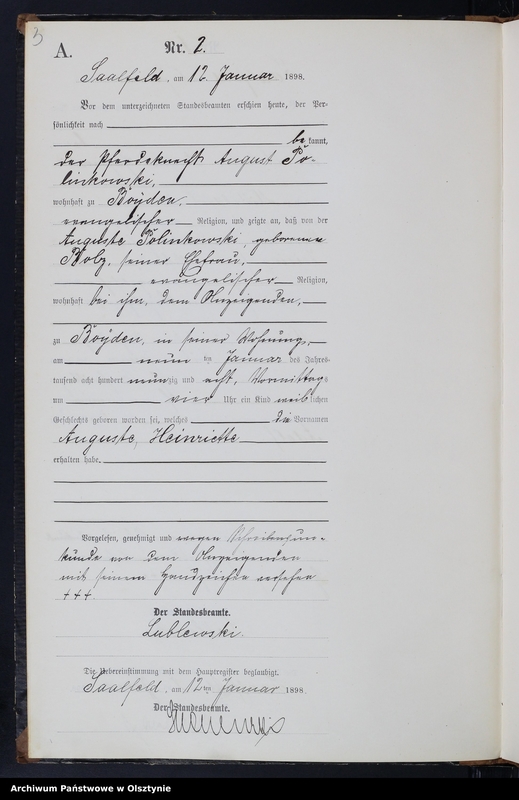 3
A.
Nr. 2.
Saalfeld, am 12 Januar 1898.
Vor dem unterzeichneten Standesbeamten erschien heute, der Per-
sönlichkeit nach
be kannt,
der Pferdeknecht August Po-
linkowski,
wohnhaft zu Boyden,
evangelischer Religion, und zeigte an, daß von der
Auguste Polinkowski, geborenen
Bolz, seiner Ehefrau,
evangelischer Religion,
wohnhaft bei ihm, dem Anzeigenden,
zu Boyden, in seiner Wohnung,
am neun ten Januar des Jahres
tausend acht hundert neunzig und acht, Vormittags
um vier Uhr ein Kind weiblichen
Geschlechts geboren worden sei, welches die Vornamen
Auguste, Heinriette
erhalten habe.
Vorgelesen, genehmigt und wegen Schreibensun-
kunde von dem Anzeigenden
mit seinem Handzeichen versehen
+ + +
Der Standesbeamte.
Lublewski.
Die Uebereinstimmung mit dem Hauptregister beglaubigt.
Saalfeld, am 12 ten Januar 1898
Der Standesbeamte.
Archiwum Państwowe w Olsztynie